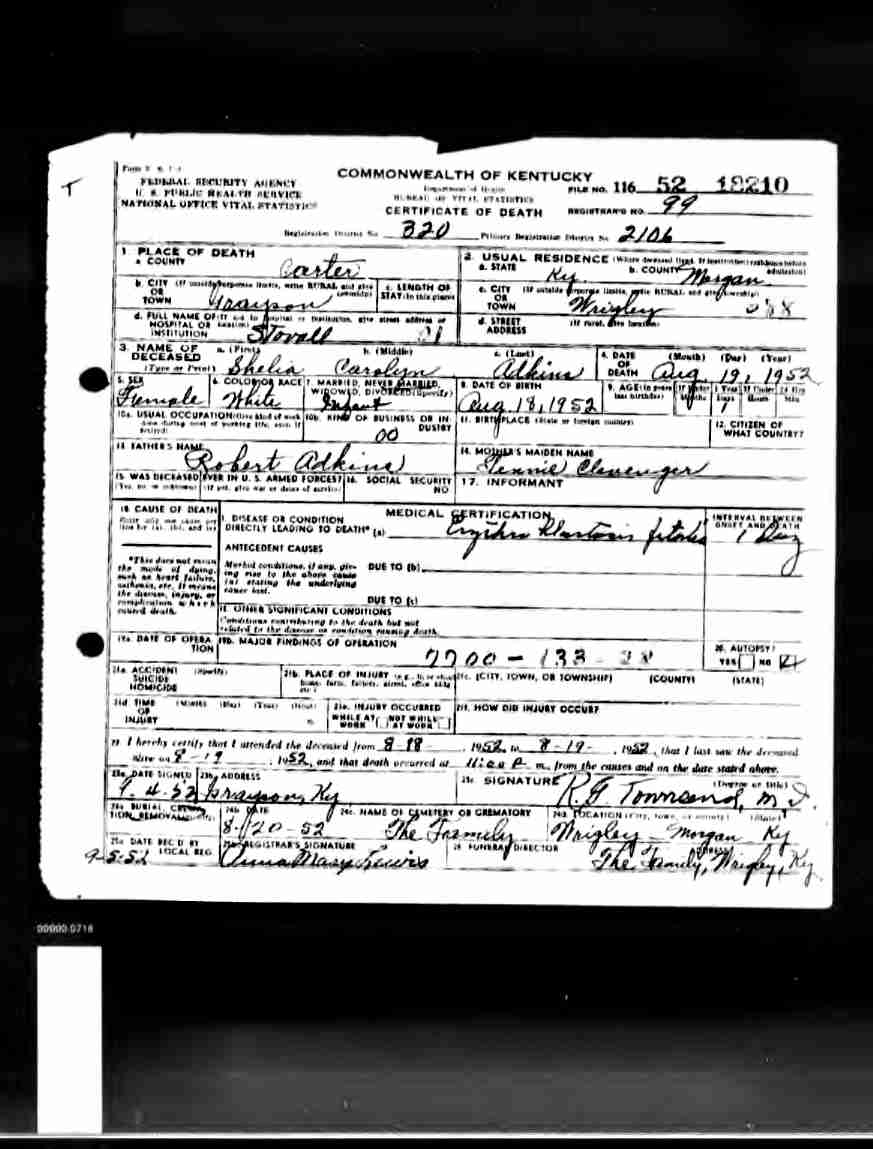 T
COMMONWEALTH OF KENTUCKY
FEDERAL SECURITY AGENCY
U. S. PUBLIC HEALTH SERVICE
NATIONAL OFFICE VITAL STATISTICS
Department of Health
BUREAU OF VITAL STATISTICS
CERTIFICATE OF DEATH
FILE NO. 116 52 18210
REGISTRAR'S NO. 99
Registration District No. 320 Primary Registration District No. 2106
1 PLACE OF DEATH
a COUNTY Carter
2. USUAL RESIDENCE (Where deceased lived. If institution: residence before admission)
a. STATE Ky. b. COUNTY Morgan
b. CITY (If outside corporate limits, write RURAL and give township)
OR
TOWN Grayson
c. LENGTH OF STAY (in this place)
c. CITY (If outside corporate limits, write RURAL and give township)
OR
TOWN Wrigley
d. FULL NAME OF (If not in hospital or institution, give street address or location)
HOSPITAL OR
INSTITUTION Stovall
d. STREET ADDRESS (If rural, give location)
3. NAME OF DECEASED (Type or Print)
a. (First) Shelia b. (Middle) Carolyn c. (Last) Adkins
4. DATE OF DEATH (Month) (Day) (Year) Aug. 19, 1952
5. SEX Female
6. COLOR OR RACE White
7. MARRIED, NEVER MARRIED, WIDOWED, DIVORCED (Specify) Infant
8. DATE OF BIRTH Aug 18, 1952
9. AGE (In years last birthday) If Under 1 Year Months Days 1 If Under 24 Hrs Hours Min
10a. USUAL OCCUPATION (Give kind of work done during most of working life, even if retired)
10b. KIND OF BUSINESS OR INDUSTRY 00
11. BIRTHPLACE (State or foreign country)
12. CITIZEN OF WHAT COUNTRY?
13 FATHER'S NAME Robert Adkins
14. MOTHER'S MAIDEN NAME Clevenger
15 WAS DECEASED EVER IN U. S. ARMED FORCES? (Yes, no, or unknown) (If yes, give war or dates of service)
16. SOCIAL SECURITY NO
17. INFORMANT
18 CAUSE OF DEATH
Enter only one cause per line for (a), (b), and (c)
MEDICAL CERTIFICATION
INTERVAL BETWEEN ONSET AND DEATH
I. DISEASE OR CONDITION
DIRECTLY LEADING TO DEATH* (a)
1 Day
*This does not mean the mode of dying, such as heart failure, asthenia, etc. It means the disease, injury, or complication which caused death.
ANTECEDENT CAUSES
Morbid conditions, if any, giving rise to the above cause (a) stating the underlying cause last.
DUE TO (b)
DUE TO (c)
II. OTHER SIGNIFICANT CONDITIONS
Conditions contributing to the death but not related to the disease or condition causing death.
19a. DATE OF OPERATION
19b. MAJOR FINDINGS OF OPERATION
7700 - 133 -
20. AUTOPSY?
YES NO
21a. ACCIDENT (Specify)
SUICIDE
HOMICIDE
21b. PLACE OF INJURY (e.g., in or about home, farm, factory, street, office bldg., etc.)
21c. (CITY, TOWN, OR TOWNSHIP) (COUNTY) (STATE)
21d TIME OF INJURY (Month) (Day) (Year) (Hour) m.
21e. INJURY OCCURRED
WHILE AT WORK NOT WHILE AT WORK
21f. HOW DID INJURY OCCUR?
22 I hereby certify that I attended the deceased from 8-18-, 1952, to 8-19-, 1952, that I last saw the deceased
alive on 8-19, 1952, and that death occurred at 11:00 P m., from the causes and on the date stated above.
23a. DATE SIGNED 9.4.52
23b. ADDRESS Grayson, Ky
23c. SIGNATURE (Degree or title) Townsend, M.D.
24a BURIAL, CREMATION, REMOVAL (Specify)
24b DATE 8-20-52
24c. NAME OF CEMETERY OR CREMATORY The Family
24d. LOCATION (City, town, or county) (State) Wrigley - Morgan Ky
25a DATE REC'D BY LOCAL REG. 9-5-52
25b REGISTRAR'S SIGNATURE Anna Mary Lewis
26 FUNERAL DIRECTOR ADDRESS The Family, Wrigley, Ky
00000-0716